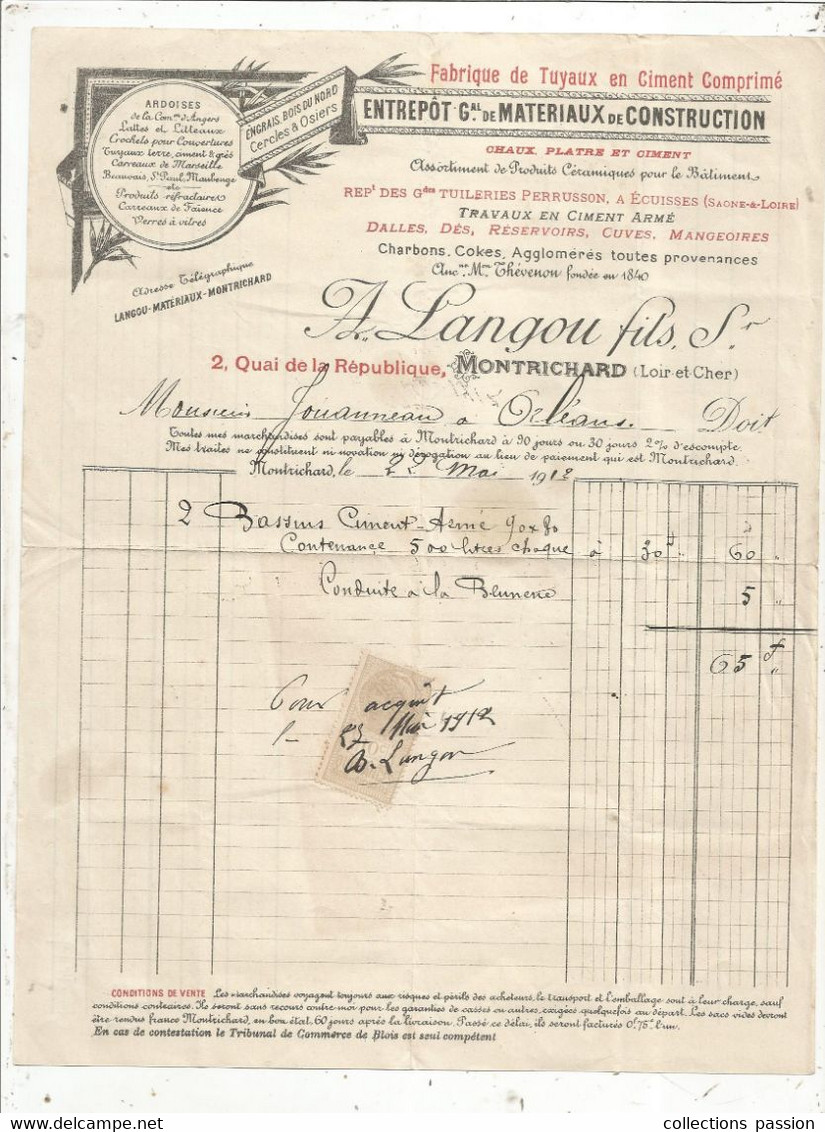 Fabrique de Tuyaux en Ciment Comprimé
ENTREPÔT G.AL DE MATERIAUX DE CONSTRUCTION
CHAUX, PLATRE ET CIMENT
Assortiment de Produits Céramiques pour le Bâtiment
REPt DES Gdes TUILERIES PERRUSSON, A ÉCUISSES (SAONE-&-LOIRE)
TRAVAUX EN CIMENT ARMÉ
DALLES, DÉS, RÉSERVOIRS, CUVES, MANGEOIRES
Charbons, Cokes, Agglomérés toutes provenances
Ancne Mson Thévenou fondée en 1840
ENGRAIS, BOIS DU NORD
Cercles & Osiers
ARDOISES
de la Comon d'Angers
Lattes et Litteaux
Crochets pour Couvertures
Tuyaux terre, ciment & grès
Carreaux de Marseille
Beauvais, St Paul, Maubeuge
etc
Produits réfractaires
Carreaux de Faïence
Verres à vitres
Adresse Télégraphique
LANGOU-MATÉRIAUX-MONTRICHARD
A. Langou fils, Sr
2, Quai de la République, MONTRICHARD (Loir-et-Cher)
Monsieur Jouanneau à Orléans. Doit
Toutes mes marchandises sont payables à Montrichard à 90 jours ou 30 jours 2% d'escompte
Mes traites ne constituent ni novation ni dérogation au lieu de paiement qui est Montrichard.
Montrichard, le 22 Mai 1912
2 Bassins Ciment-Armé 90x80
Contenance 500 litres chaque à 30f " 60 "
Conduite à la 5 "
65 f "
Pour acquit
le 23 Mai 1912
A. Langou
CONDITIONS DE VENTE Les Marchandises voyagent toujours aux risques et périls des acheteurs, le transport et l'emballage sont à leur charge, sauf
conditions contraires. Ils seront sans recours contre moi pour les garanties de casses ou autres, exigées quelquefois au départ. Les sacs vides devront
être rendus franco Montrichard, en bon état, 60 jours après la livraison. Passé ce délai, ils seront facturés 0f.75c l'un.
En cas de contestation le Tribunal de Commerce de Blois est seul compétent
collections passion